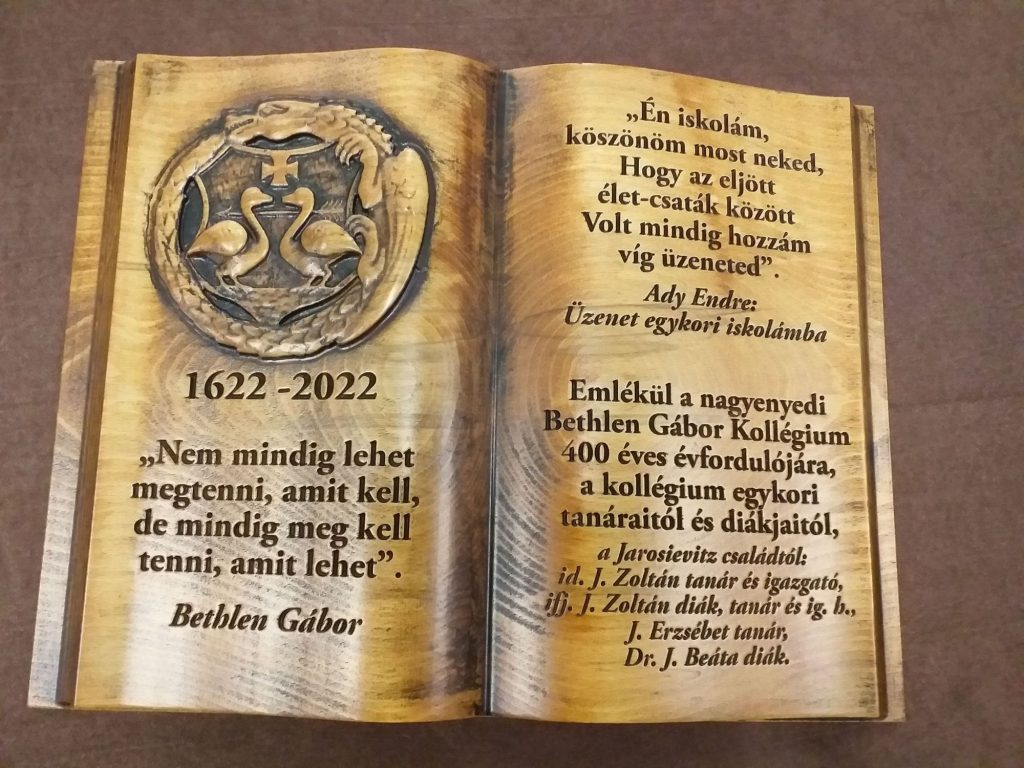 1622 -2022
„Nem mindig lehet
megtenni, amit kell,
de mindig meg kell
tenni, amit lehet”.
Bethlen Gábor
„Én iskolám,
köszönöm most neked,
Hogy az eljött
élet-csaták között
Volt mindig hozzám
víg üzeneted”.
Ady Endre:
Üzenet egykori iskolámba
Emlékül a nagyenyedi
Bethlen Gábor Kollégium
400 éves évfordulójára,
a kollégium egykori
tanáraitól és diákjaitól,
a Jarosievitz családtól:
id. J. Zoltán tanár és igazgató,
ifj. J. Zoltán diák, tanár és ig. h.,
J. Erzsébet tanár,
Dr. J. Beáta diák.